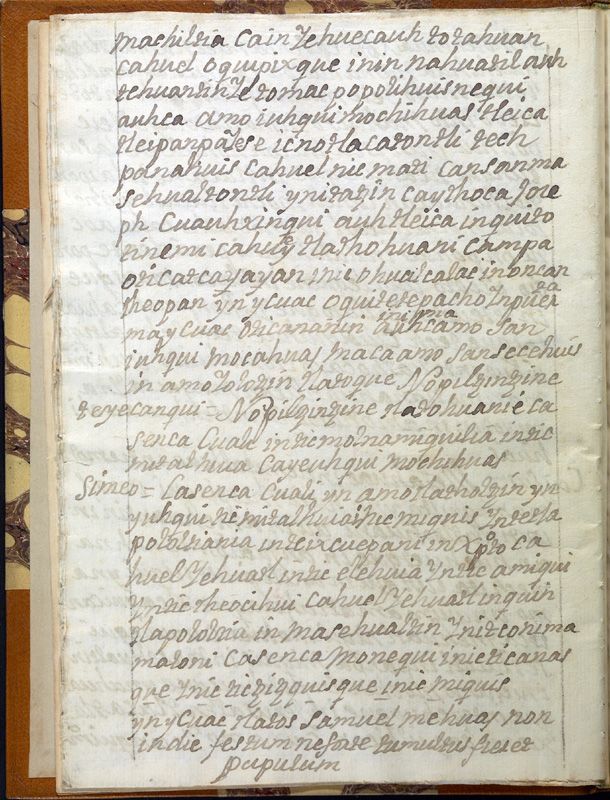 machiltia Cain Yehuecauh totahuan
cahuel oquipixque inin nahuatil auh
tehuantin Yetomac popolihuisnequi
auhca amo iuhqui mochihuas tleica
tleipanpa se icnotlacatontli tech
panahuis Cahuel nicmati cansanma
sehualtontli ynitatzin caythoca Jose
ph Cuauhxinqui auhtleica inquito
tinemi cahuey tlathohuani campa
oticatca yayan inic ohualcalac inoncan
theopan yn ycuac oquitetepacho Inpuerta
ma ycuac oticananin intlama auhcamo san
iuhqui mocahuas macaamo sansecehuis
in amotolotzin tlatoque Nopiltzintzine
teyecanqui = Nopiltzintzine tlatohuanie ca
senca Cuali inticmotnamiquilia intic
mitalhuia Cayeuhqui mochihuas
Simeo = Casenca Cuali yn amotlatholtzin yn
yuhqui ticmitalhuia inic miquis Intetla
pololtiania inteixcuepani in Xpto ca
huel Yehuatl intic elehuia Yntic amiqui
Yntic theocihui Cahuel Yehuatl inquin
tlapololtia in masehualtin Yniteonima
matoni Casenca monequi inic ticanas
que Ynic titzitzquisque inic miquis
yn ycuac tlatos Samuel mehuas non
in die festum neforte tumultus fieret
populum